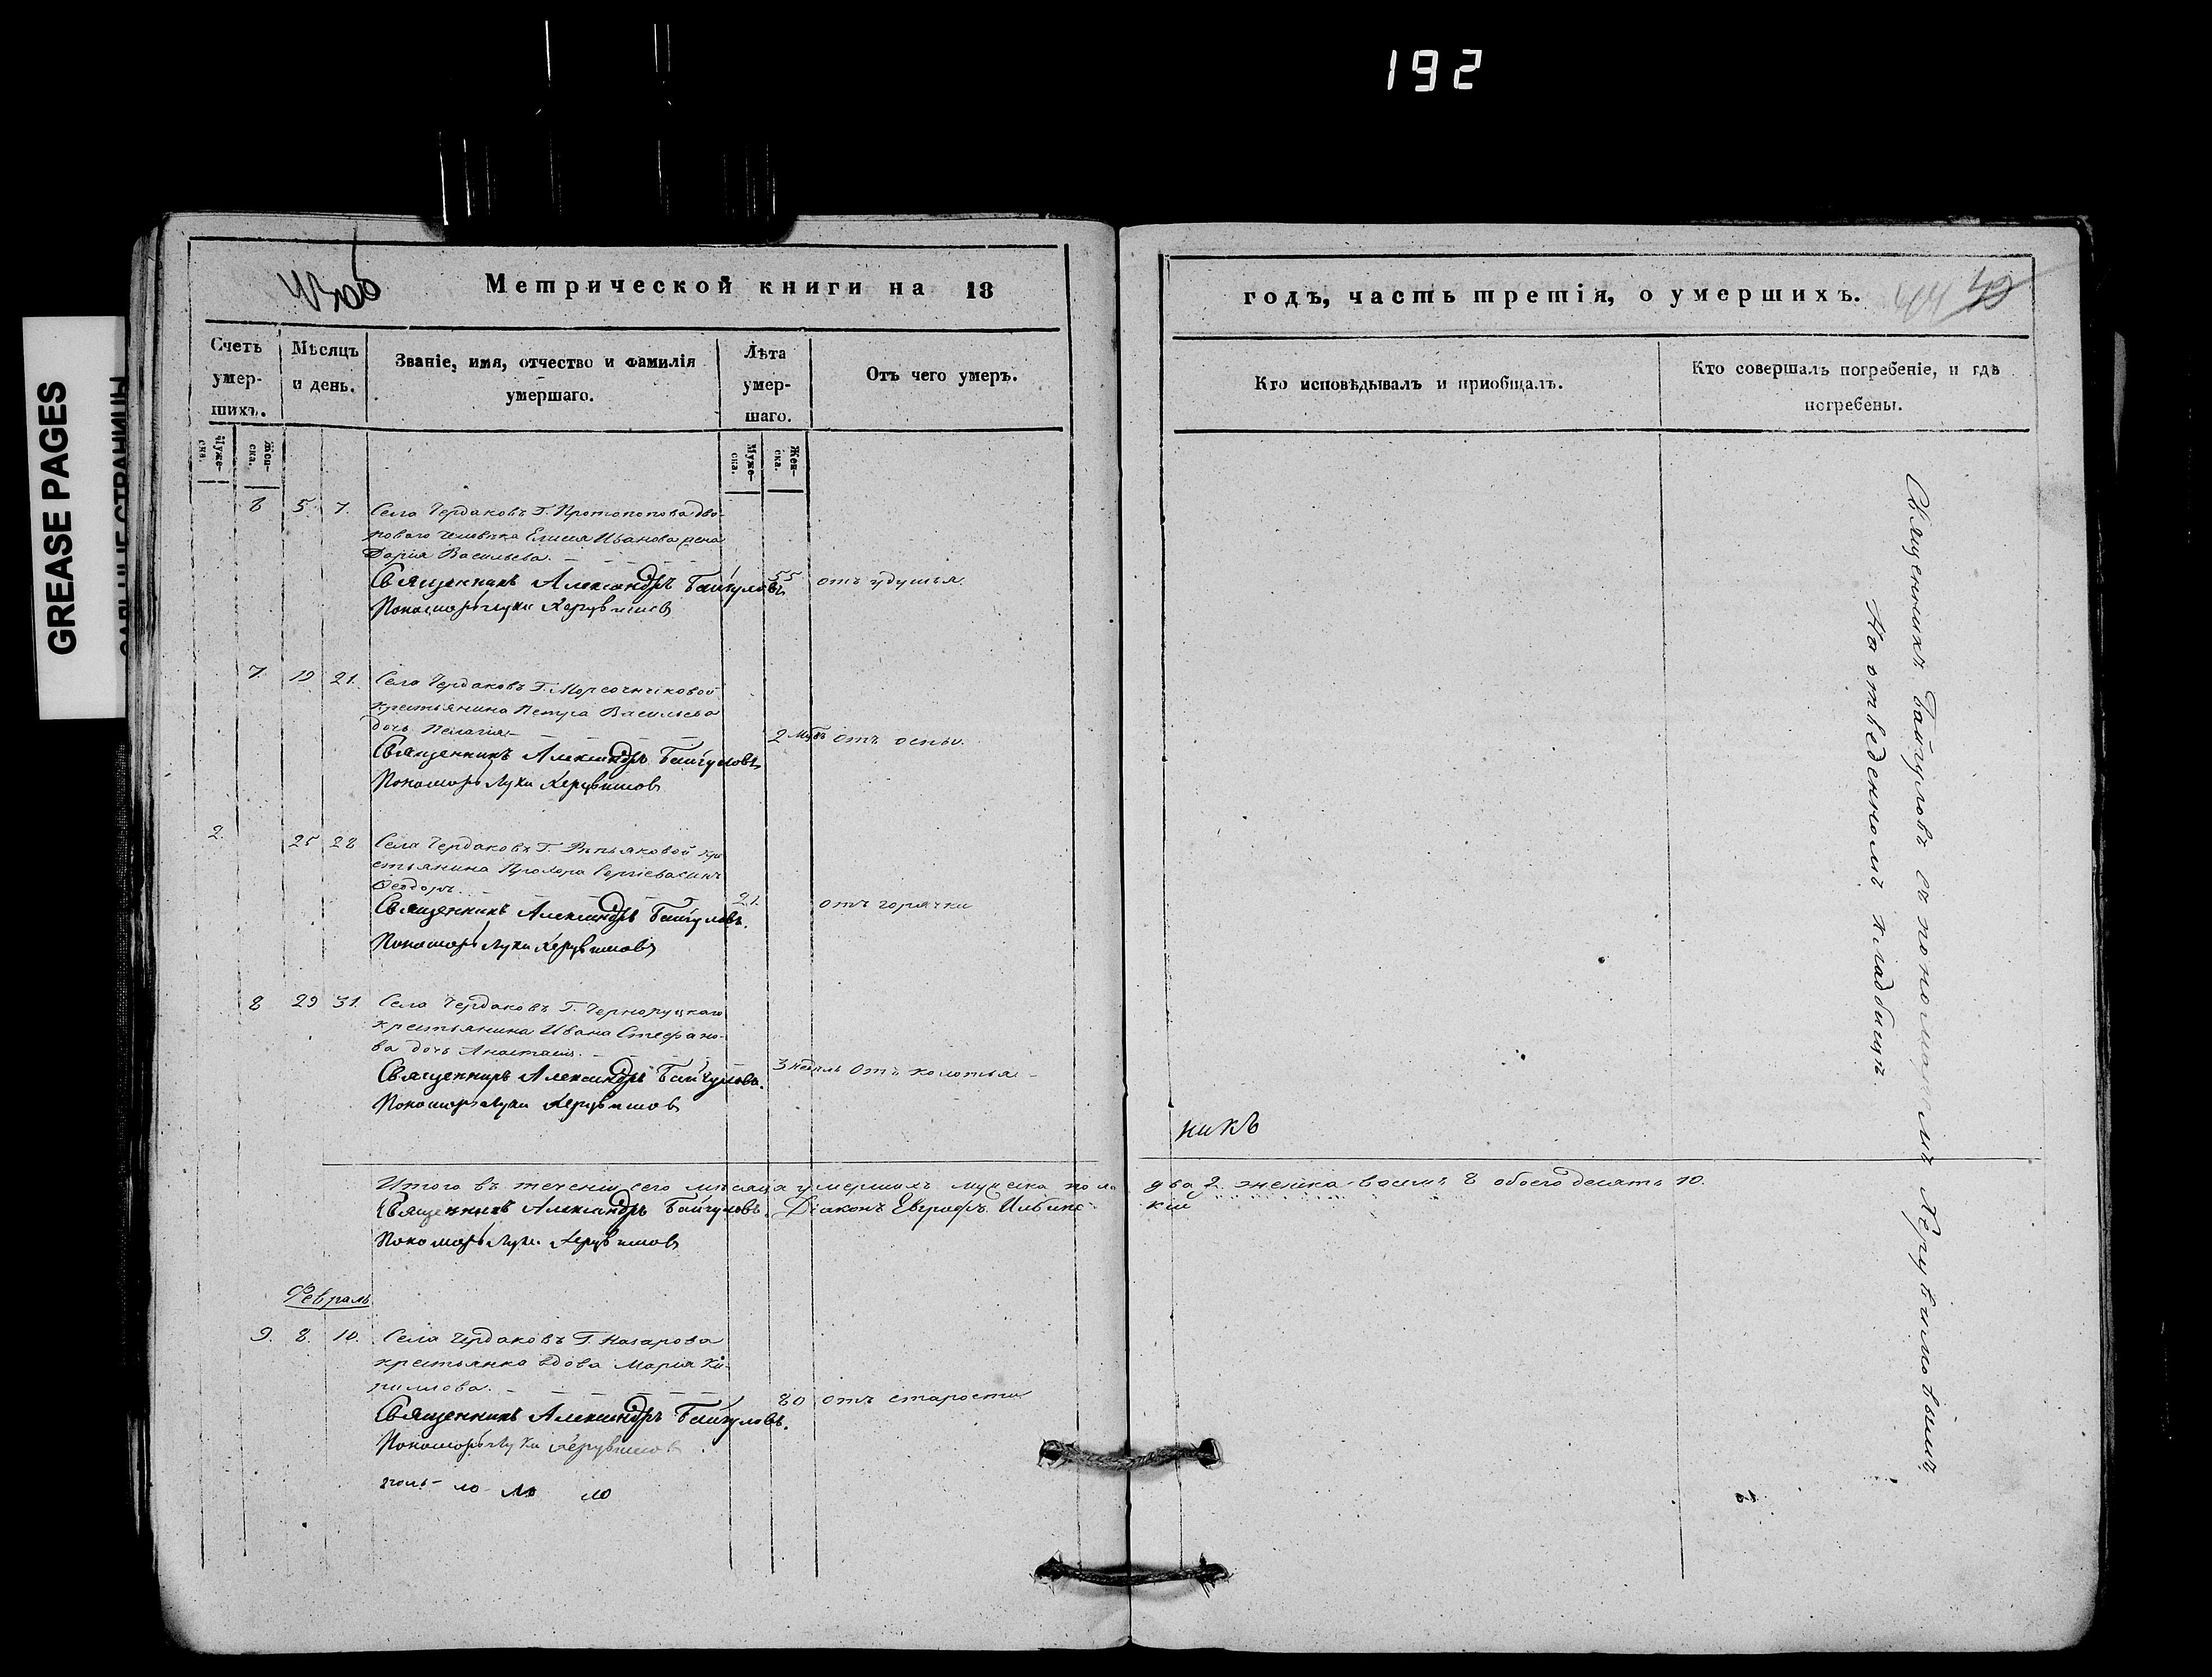 192
GREASE PAGES
Метрической книги на 18
годъ, часть третія, о умершихъ.
44 49
Счетъ умер-шихъ.
Мѣсяцъ и день.
Званіе, имя, отчество и фамилія умершаго.
Лѣта умер-шаго.
Отъ чего умеръ.
Кто исповѣдывалъ и пріобщалъ.
Кто совершалъ погребеніе, и гдѣ погребены.
Муже-ска.
Жен-ска.
Муже-ска.
Жен-ска.
6 5. 7. Села Чердаковъ Г. Протопопова дво-
роваго человѣка Елисея Иванова жена
Дарія Васильева.
55 отъ удушья
Священникъ Александръ Байгуловъ
Пономарь Лука Херувимовъ
7 19 21. Села Чердаковъ Г.
крестьянина Петра Васильева
дочь Пелагія
2 мцвъ отъ оспы.
Священникъ Александръ Байгуловъ
Пономарь Лука Херувимовъ
2. 25 28 Села Чердаковъ Г. кре
стьянина Прохора Сергіева сынъ
Ѳеодоръ
21. отъ горячки
Священникъ Александръ Байгуловъ.
Пономарь Лука Херувимовъ
8 29 31. Села Чердаковъ Г. Черноруцкаго
крестьянина Ивана Стефано-
ва дочь Анастасія.
3 недѣль отъ колотья
Священникъ Александръ Байгуловъ.
Пономарь Лука Херувимовъ
никъ
Итого въ теченіи сего мѣсяца умершихъ мужеска пола два 2. женска восемь 8 обоего десять 10.
Священникъ Александръ Байгуловъ. Діаконъ Евграфъ Ильинс-
кій
Пономарь Лука Херувимовъ
Февраль
9. 8. 10. Села Чердаковъ Г. Назарова
крестьянка вдова Марія Ки-
риллова.
80 отъ старости
Священникъ Александръ Байгуловъ.
Пономарь Лука Херувимовъ
ло ло ло
Священникъ Байгуловъ съ пономаремъ Херувимовымъ
На отведенномъ кладбищѣ.